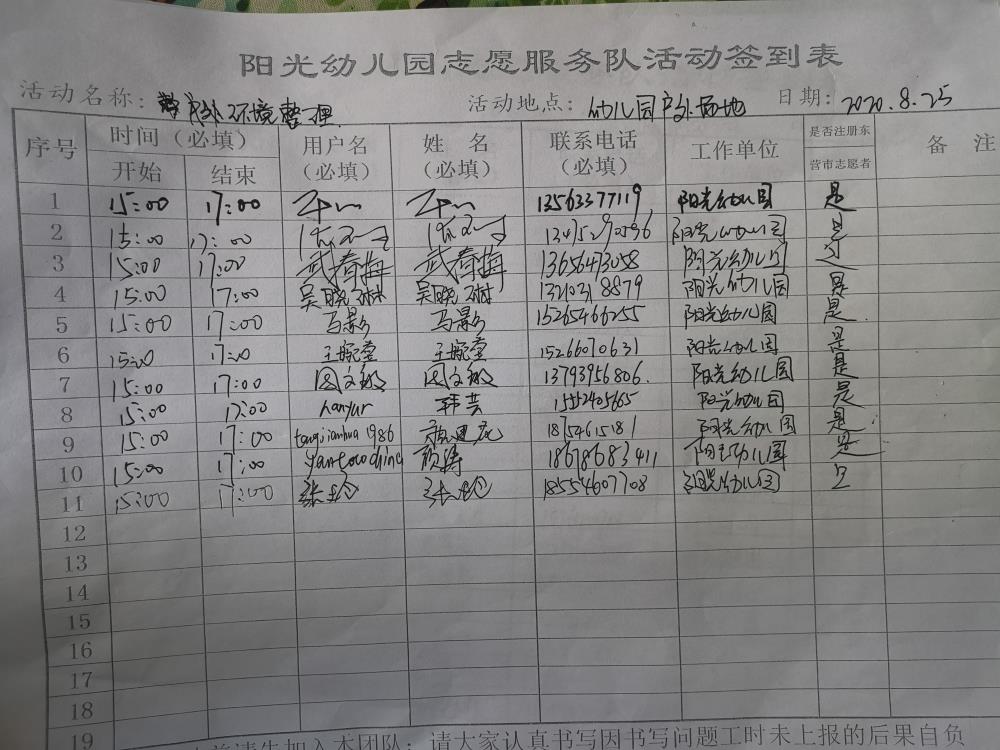 阳光幼儿园志愿服务队活动签到表
活动名称: 户外环境整理 活动地点: 幼儿园户外场地 日期: 2020.8.25
序号 时间(必填) 用户名(必填) 姓名(必填) 联系电话(必填) 工作单位 是否注册东营市志愿者 备注
开始 结束
1 15:00 17:00 13563377119 阳光幼儿园 是
2 15:00 17:00 13475290596 阳光幼儿园 是
3 15:00 17:00 武春梅 武春梅 13656473058 阳光幼儿园 是
4 15:00 17:00 吴晓琳 吴晓琳 阳光幼儿园 是
5 15:00 17:00 马影 马影 15265466255 阳光幼儿园 是
6 15:00 17:00 王婉莹 王婉莹 15266070631 阳光幼儿园 是
7 15:00 17:00 13793956806. 阳光幼儿园 是
8 15:00 17:00 hanyur 韩芸 阳光幼儿园 是
9 15:00 17:00 tangqianhua1986 18754615181 阳光幼儿园 是
10 15:00 17:00 颜涛 18678683411 阳光幼儿园 是
11 15:00 17:00 18554607708 阳光幼儿园
12
13
14
15
16
17
18
19
请先加入本团队; 请大家认真书写因书写问题工时未上报的后果自负